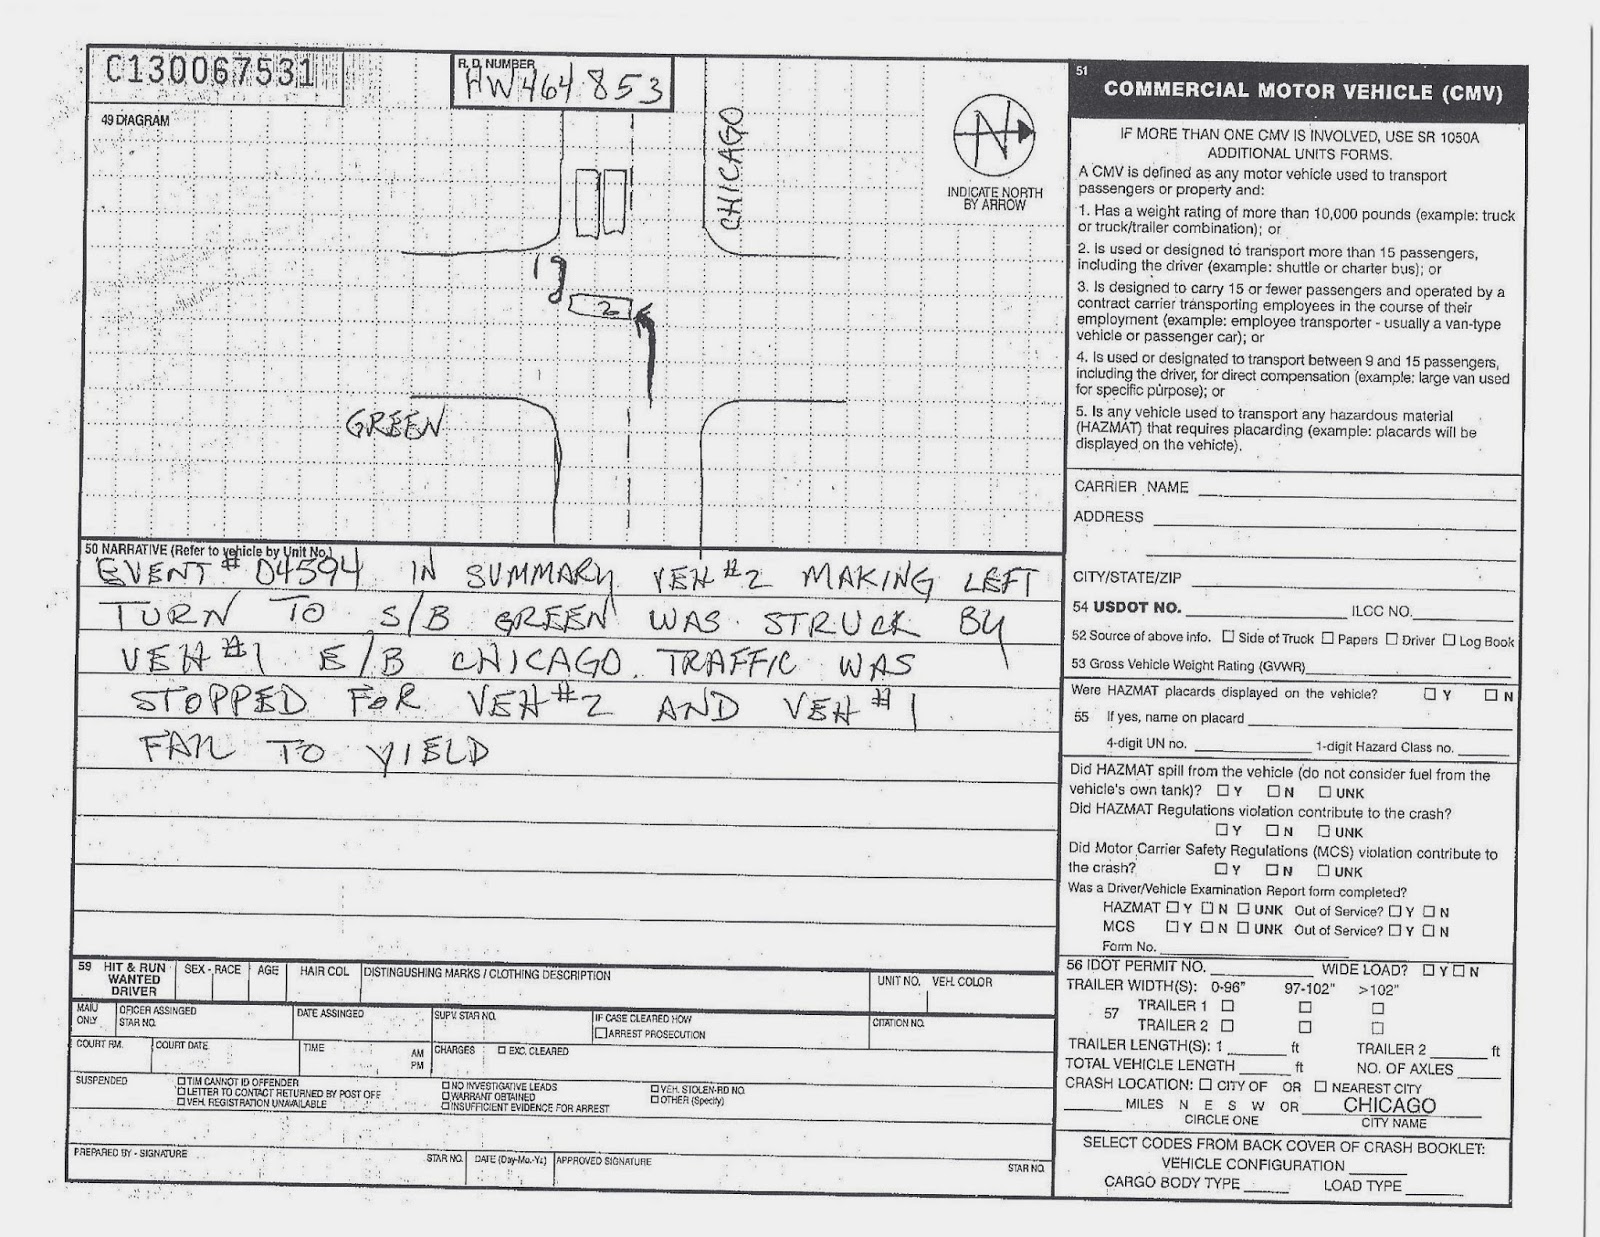 C130067531
R. D. NUMBER
HW464853
49 DIAGRAM
CHICAGO
N
INDICATE NORTH
BY ARROW
1
2
GREEN
50 NARRATIVE (Refer to vehicle by Unit No.)
EVENT # 04594 IN SUMMARY VEH #2 MAKING LEFT
TURN TO S/B GREEN WAS STRUCK BY
VEH #1 E/B CHICAGO. TRAFFIC WAS
STOPPED FOR VEH #2 AND VEH #1
FAIL TO YIELD
59 HIT & RUN WANTED DRIVER
SEX - RACE
AGE
HAIR COL
DISTINGUSHING MARKS / CLOTHING DESCRIPTION
UNIT NO. VEH. COLOR
MAIU ONLY
OFICER ASSINGED
STAR NO.
DATE ASSINGED
SUPV. STAR NO.
IF CASE CLEARED HOW
☐ ARREST PROSECUTION
CITATION NO.
COURT RM.
COURT DATE
TIME
AM
PM
CHARGES ☐ EXC. CLEARED
SUSPENDED
☐ TIM CANNOT ID OFFENDER
☐ LETTER TO CONTACT RETURNED BY POST OFF
☐ VEH. REGISTRATION UNAVAILABLE
☐ NO INVESTIGATIVE LEADS
☐ WARRANT OBTAINED
☐ INSUFFICIENT EVIDENCE FOR ARREST
☐ VEH. STOLEN-RD NO.
☐ OTHER (Specify)
PREPARED BY - SIGNATURE
STAR NO.
DATE (Day-Mo.-Yr.)
APPROVED SIGNATURE
STAR NO.
51
COMMERCIAL MOTOR VEHICLE (CMV)
IF MORE THAN ONE CMV IS INVOLVED, USE SR 1050A
ADDITIONAL UNITS FORMS.
A CMV is defined as any motor vehicle used to transport
passengers or property and:
1. Has a weight rating of more than 10,000 pounds (example: truck
or truck/trailer combination); or
2. Is used or designed to transport more than 15 passengers,
including the driver (example: shuttle or charter bus); or
3. Is designed to carry 15 or fewer passengers and operated by a
contract carrier transporting employees in the course of their
employment (example: employee transporter - usually a van-type
vehicle or passenger car); or
4. Is used or designated to transport between 9 and 15 passengers,
including the driver, for direct compensation (example: large van used
for specific purpose); or
5. Is any vehicle used to transport any hazardous material
(HAZMAT) that requires placarding (example: placards will be
displayed on the vehicle).
CARRIER NAME
ADDRESS
CITY/STATE/ZIP
54 USDOT NO. ILCC NO.
52 Source of above info. ☐ Side of Truck ☐ Papers ☐ Driver ☐ Log Book
53 Gross Vehicle Weight Rating (GVWR)
Were HAZMAT placards displayed on the vehicle? ☐ Y ☐ N
55 If yes, name on placard
4-digit UN no. 1-digit Hazard Class no.
Did HAZMAT spill from the vehicle (do not consider fuel from the
vehicle's own tank)? ☐ Y ☐ N ☐ UNK
Did HAZMAT Regulations violation contribute to the crash?
☐ Y ☐ N ☐ UNK
Did Motor Carrier Safety Regulations (MCS) violation contribute to
the crash? ☐ Y ☐ N ☐ UNK
Was a Driver/Vehicle Examination Report form completed?
HAZMAT ☐ Y ☐ N ☐ UNK Out of Service? ☐ Y ☐ N
MCS ☐ Y ☐ N ☐ UNK Out of Service? ☐ Y ☐ N
Form No.
56 IDOT PERMIT NO. WIDE LOAD? ☐ Y ☐ N
TRAILER WIDTH(S): 0-96" 97-102" >102"
57 TRAILER 1 ☐ ☐ ☐
TRAILER 2 ☐ ☐ ☐
TRAILER LENGTH(S): 1 ft TRAILER 2 ft
TOTAL VEHICLE LENGTH ft NO. OF AXLES
CRASH LOCATION: ☐ CITY OF OR ☐ NEAREST CITY
MILES N E S W OR CHICAGO
CIRCLE ONE CITY NAME
SELECT CODES FROM BACK COVER OF CRASH BOOKLET:
VEHICLE CONFIGURATION
CARGO BODY TYPE LOAD TYPE